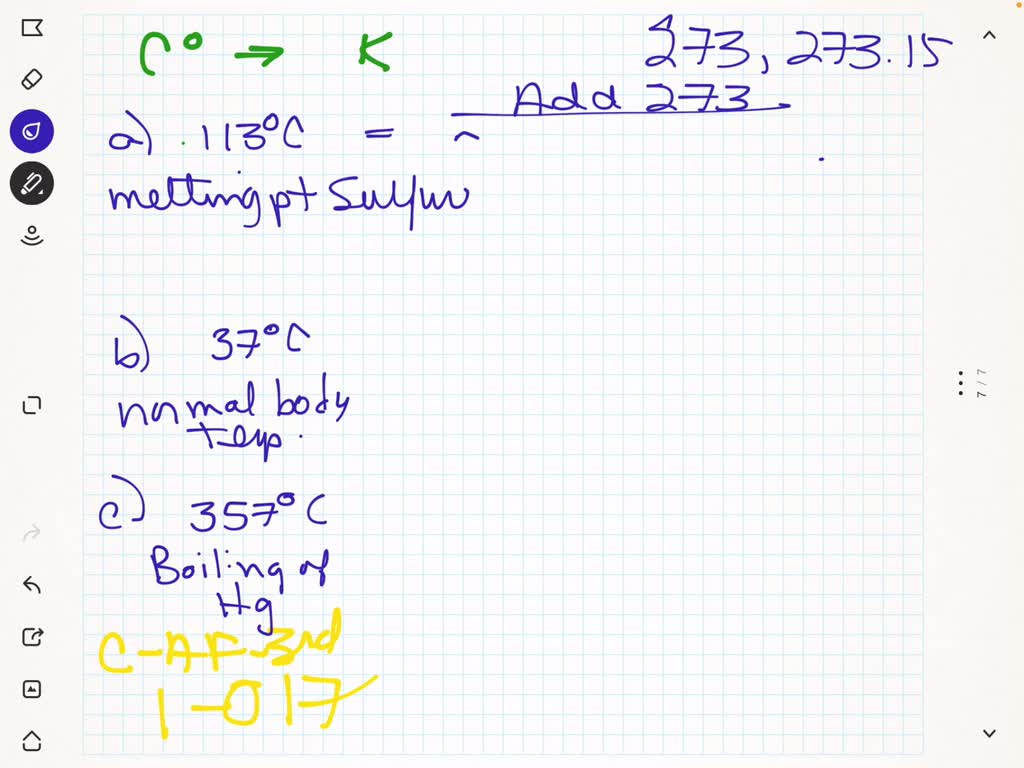 C° → K
273, 273.15
Add 273
a) 113°C =
melting pt Sulfur
b) 37°C
normal body
temp.
c) 357°C
Boiling of
Hg
C-AF-3rd
1-017
7 / 7